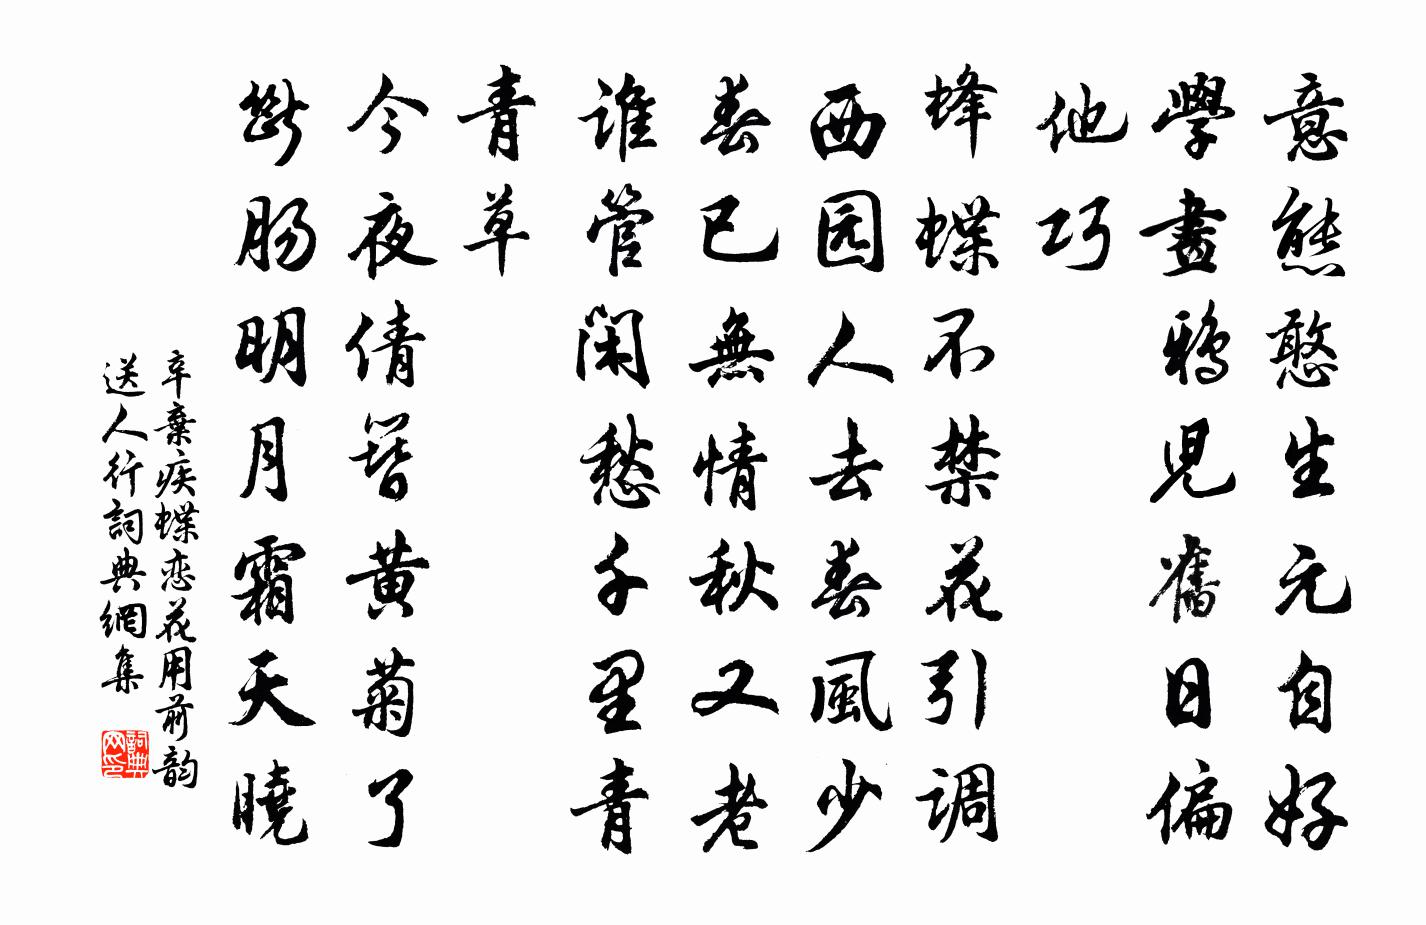 意態憨生元自好
學畫鴉兒舊日偏
他巧
蜂蝶不禁花引调
西园人去春風少
春已無情秋又老
谁管闲愁千里青
青草
今夜倩簪黄菊了
斷肠明月霜天曉
辛棄疾蝶恋花用前韵
送人行詞典網集
詞典
网印